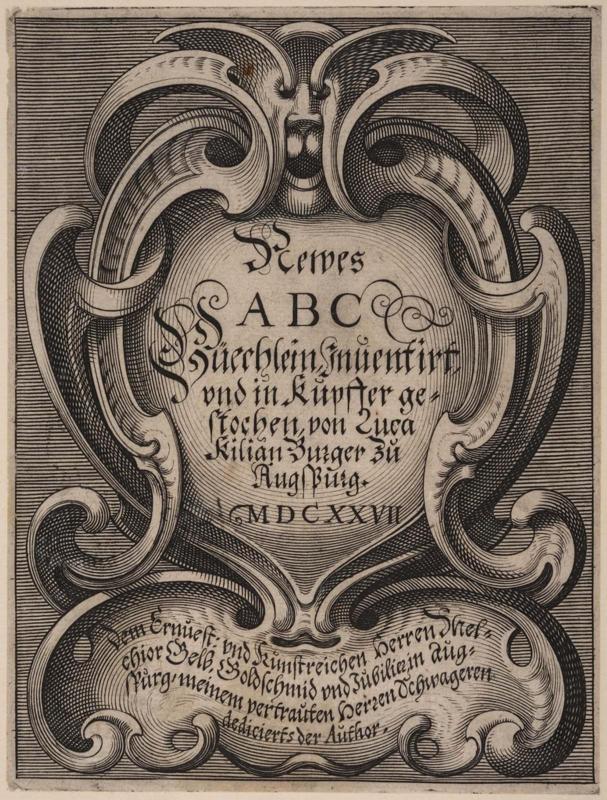 Newes
ABC
Büechlein, Inuentirt,
vnd in Kupffer ge-
stochen, von Luca
Kilian Burger Zu
Augspurg.
MDCXXVII
Dem Ernuest. vnd Kunstreichen Herren Mel-
chior Gelb, Goldschmid vnd Jubilierin Aug-
spurg, meinem vertrauten Herren Schwageren
dedicierts der Author.